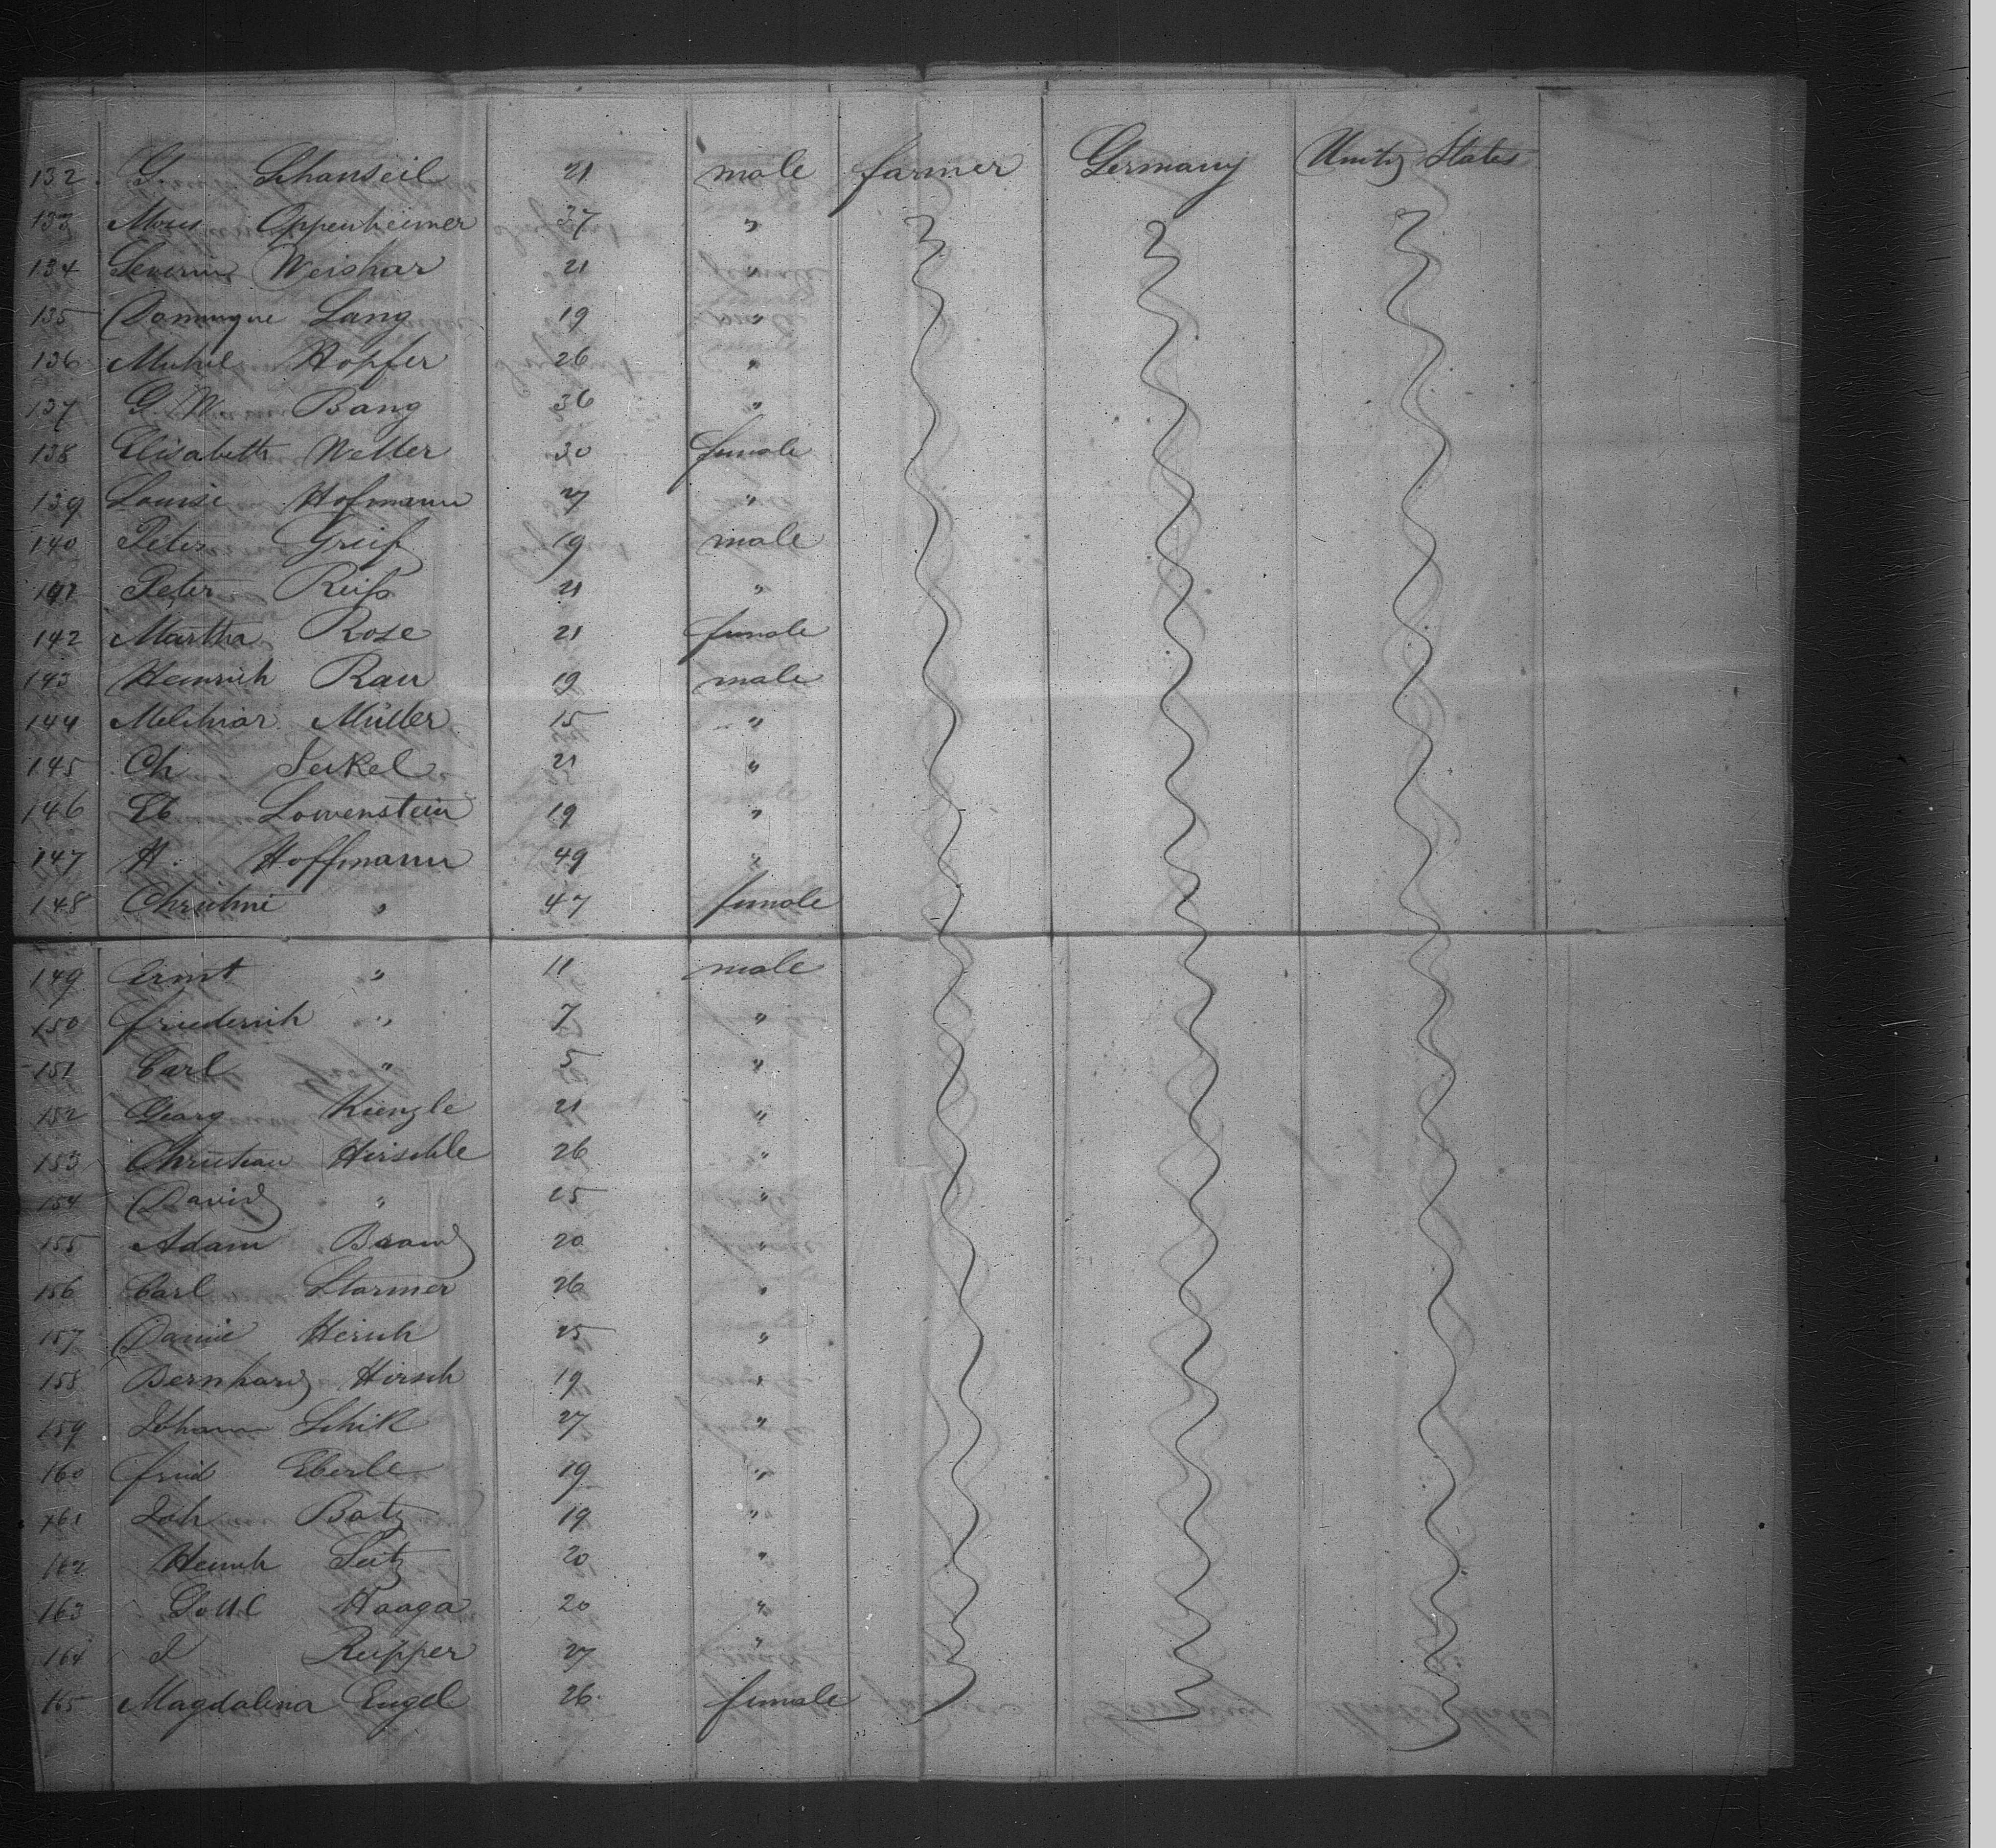 132. G. Schanseil 21 male farmer Germany Unity States
133 Moses Oppenheimer 37 "
134 Severin Weishar 21 "
135 Dominique Lang 19 "
136 Michel Hopfer 26 "
137 G. W. Bang 36 "
138 Elisabeth Weller 30 female
139 Louise Hofmann 27 "
140 Peter Greif 19 male
141 Peter Reiß 21 "
142 Martha Rose 21 female
143 Heinrich Rau 19 male
144 Melchior Müller 15 "
145 Ch Seikel 21 "
146 Lowenstein 19 "
147 H. Hoffmann 49 "
148 Christine " 47 female
149 Ernst " 11 male
150 Friederich " 7 "
151 Carl " 5 "
152 Georg Kienzle 21 "
153 Christian Hirschle 26 "
154 David " 25 "
155 Adam Braun 20 "
156 Carl Starmer 26 "
157 Hirsch 25 "
158 Bernhard Hirsch 19 "
159 Johann Schik 27 "
160 Fried Eberle 19 "
161 Joh Batz 19 "
162 Heinrich Seitz 20 "
163 Gottl Haaga 20 "
164 J Rupper 27 "
165 Magdalena Engel 26 female